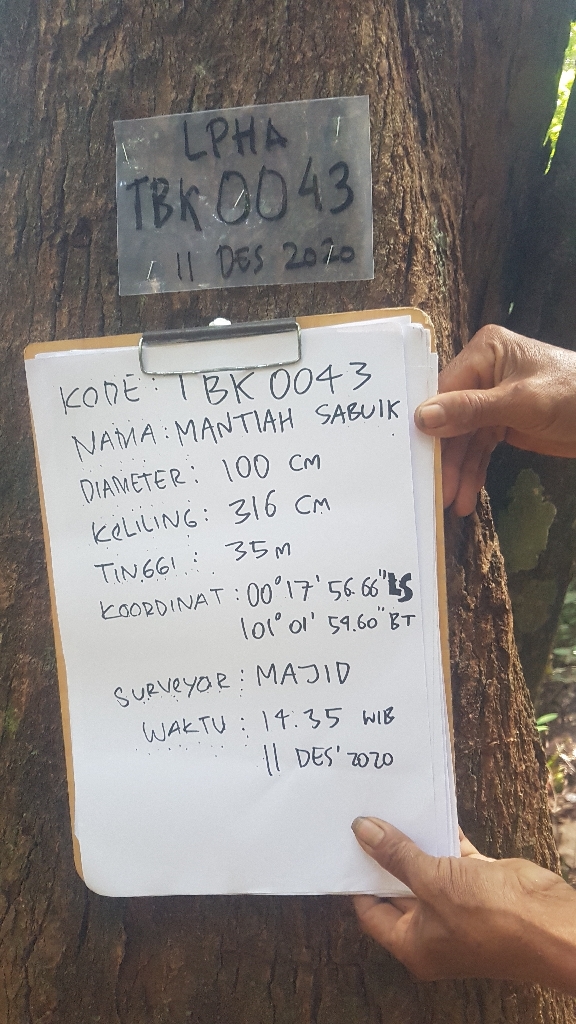 LPHA
TBK 0043
11 DES 2020
KODE : TBK 0043
NAMA : MANTIAH SABUIK
DIAMETER : 100 CM
KELILING : 316 CM
TINGGI : 35 M
KOORDINAT : 00° 17' 56.66" LS
101° 01' 59.60" BT
SURVEYOR : MAJID
WAKTU : 14.35 WIB
11 DES' 2020